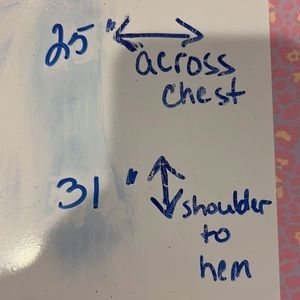 25"
across
chest
31"
shoulder
to
hem